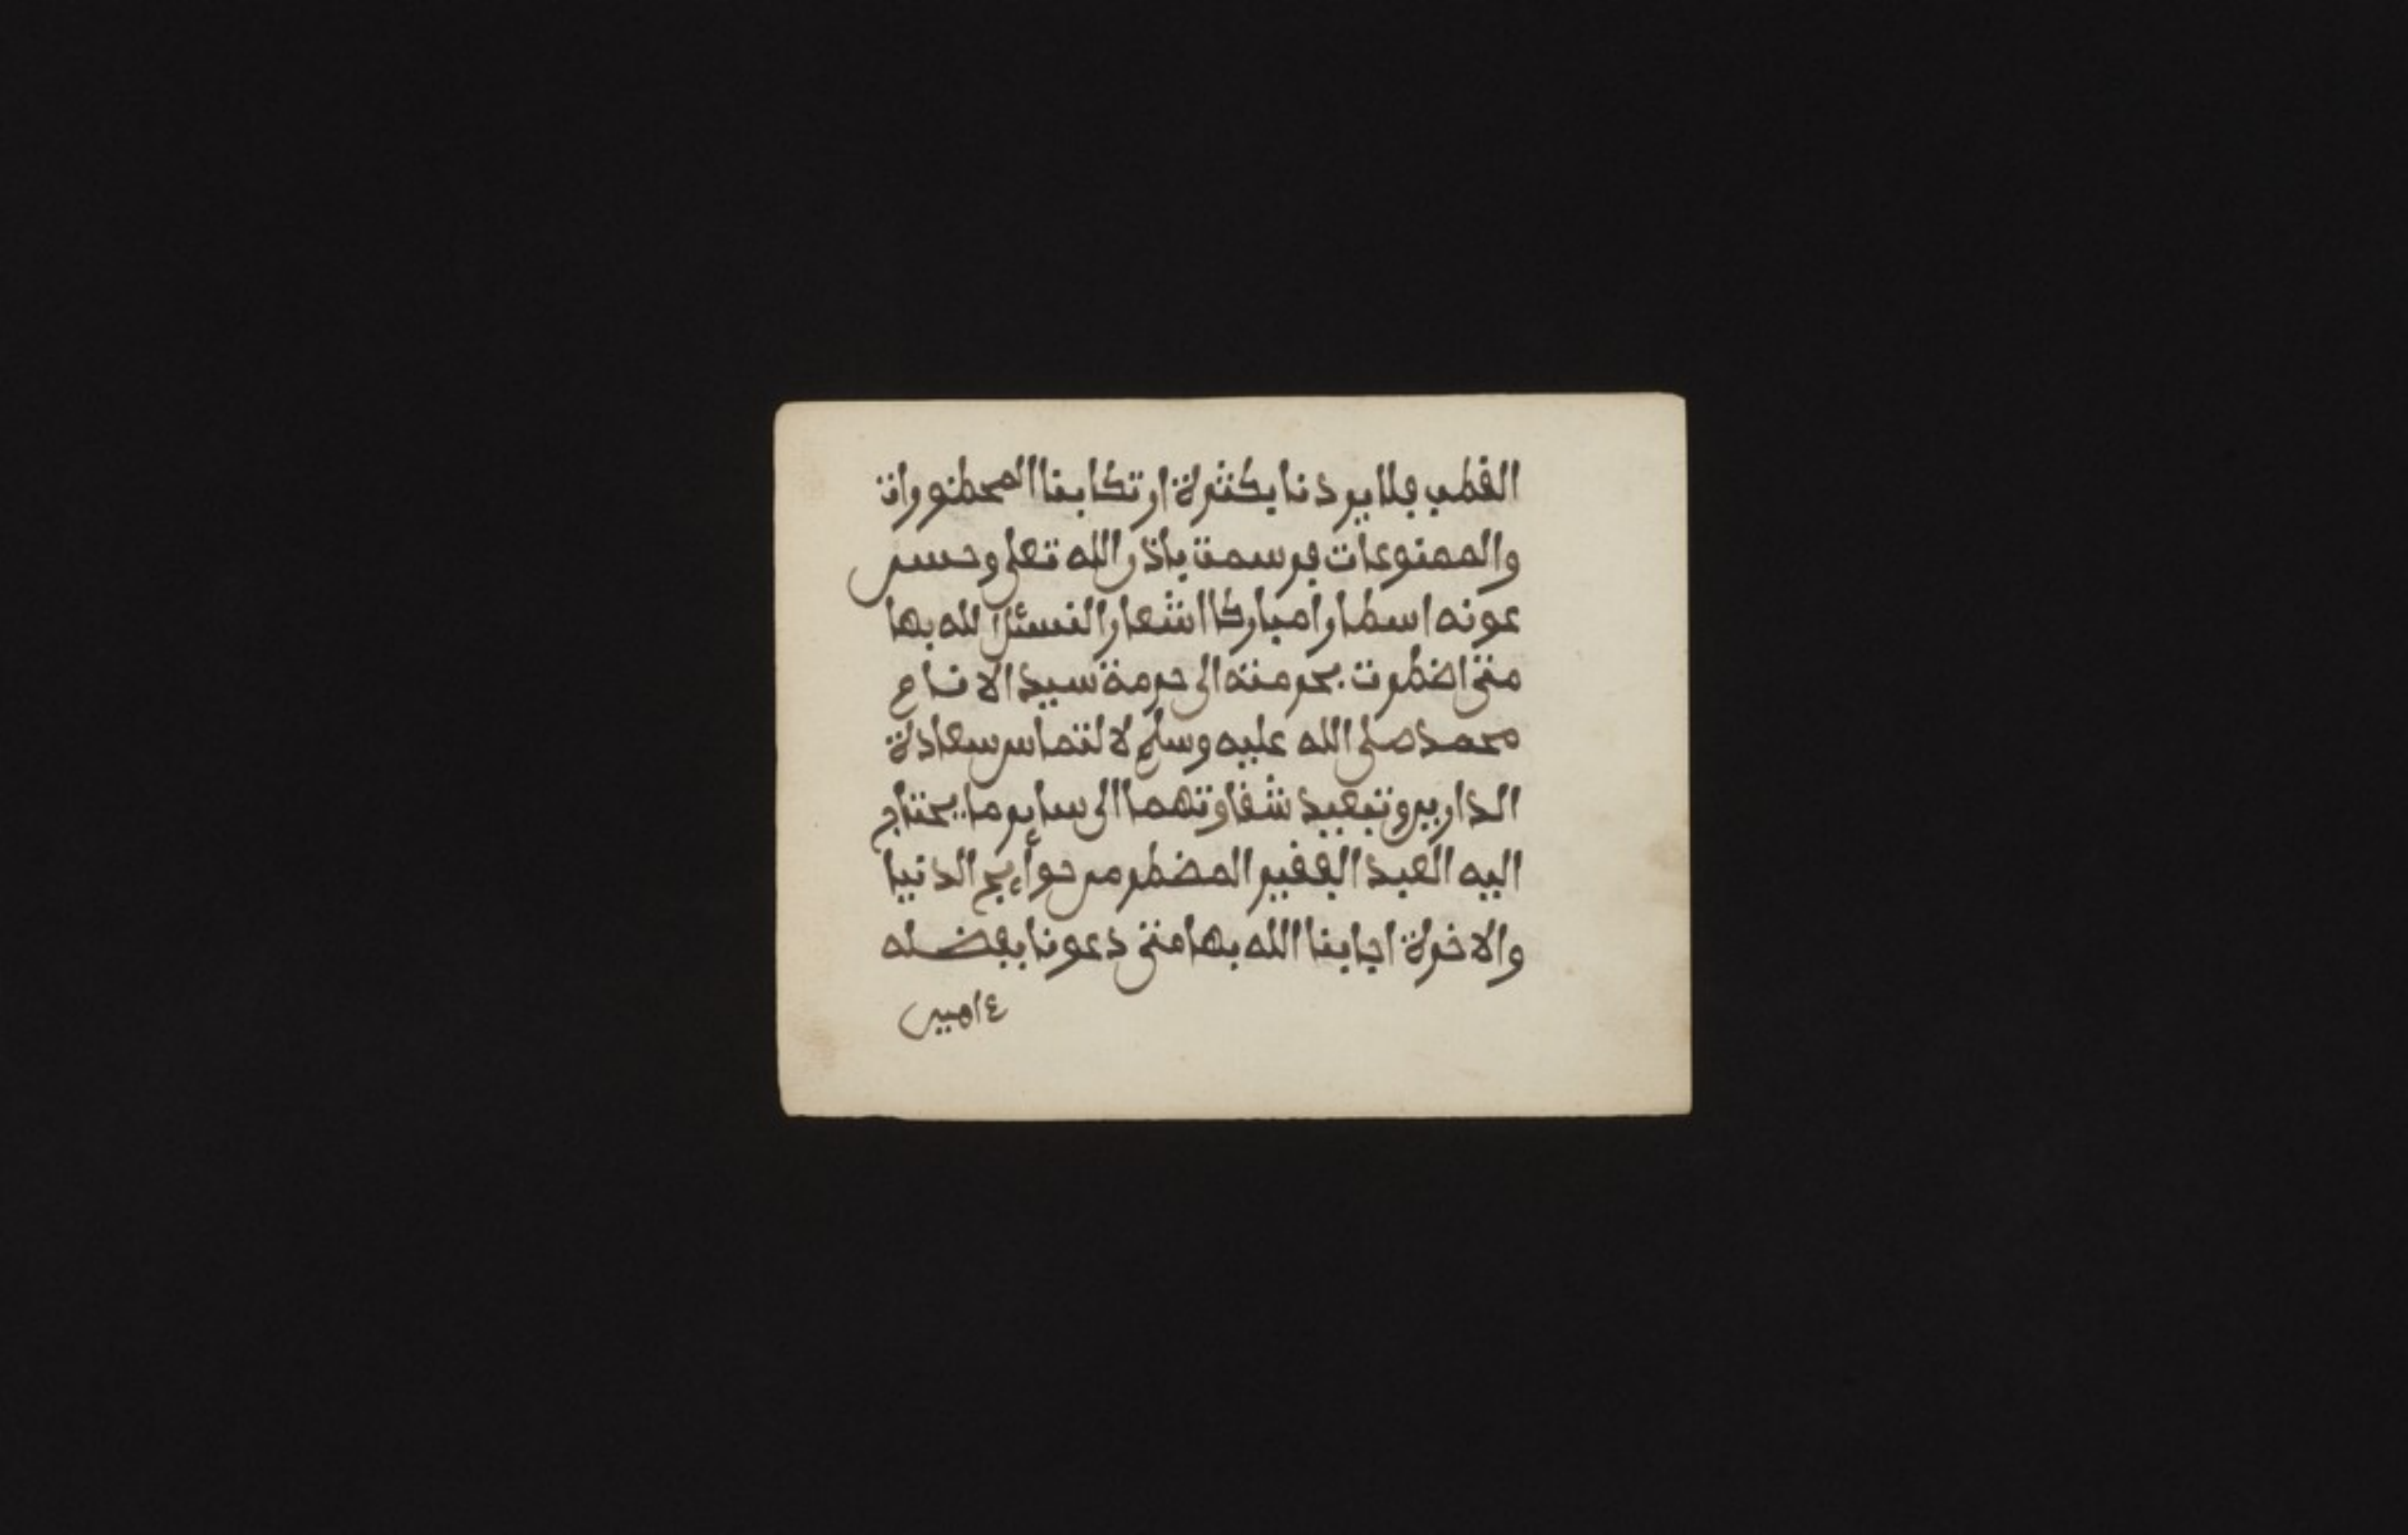 القطب فلا يردنا بكثرة ارتكابنا المحظورات
والممنوعات فرسمت باذن الله تعلى وحسن
عونه اسطارا مباركا اشعارا لنسئل الله بها
متى اضطرت بحرمته الى حرمة سيد الانام
محمد صلى الله عليه وسلم لالتماس سعادة
الدارين وتبعيد شقاوتهما الى ساير ما يحتاج
اليه العبد الفقير المضطر من حوأيج الدنيا
والاخرة اجابنا الله بها متى دعونا بفضله
ء امين